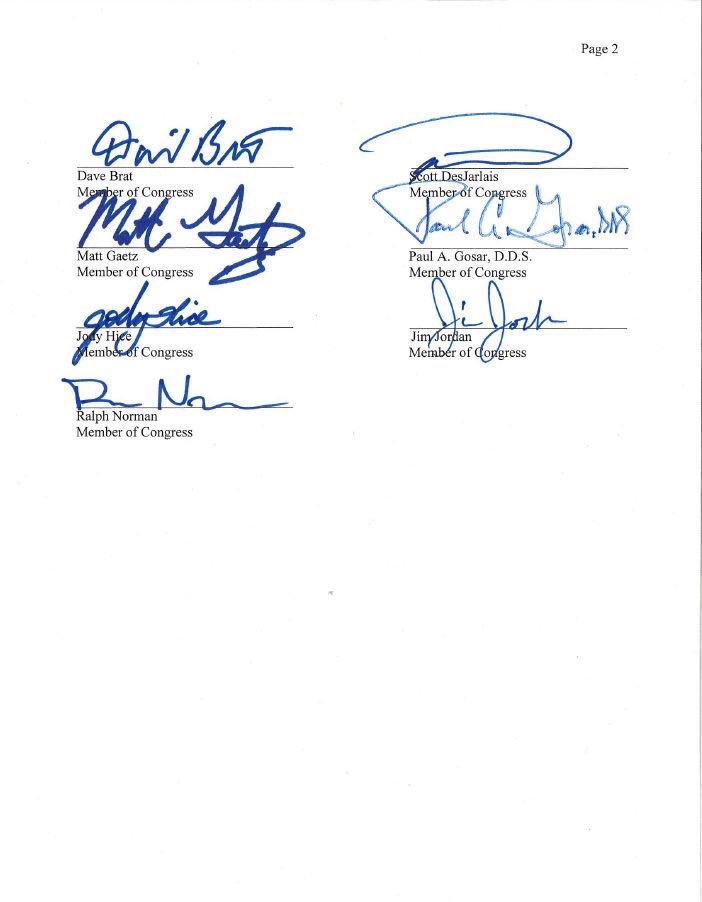 Page 2
David Brat
Dave Brat
Member of Congress
Scott DesJarlais
Member of Congress
Matt Gaetz
Matt Gaetz
Member of Congress
Paul A. Gosar, DDS
Paul A. Gosar, D.D.S.
Member of Congress
Jody Hice
Jody Hice
Member of Congress
Jim Jordan
Member of Congress
Ralph Norman
Member of Congress